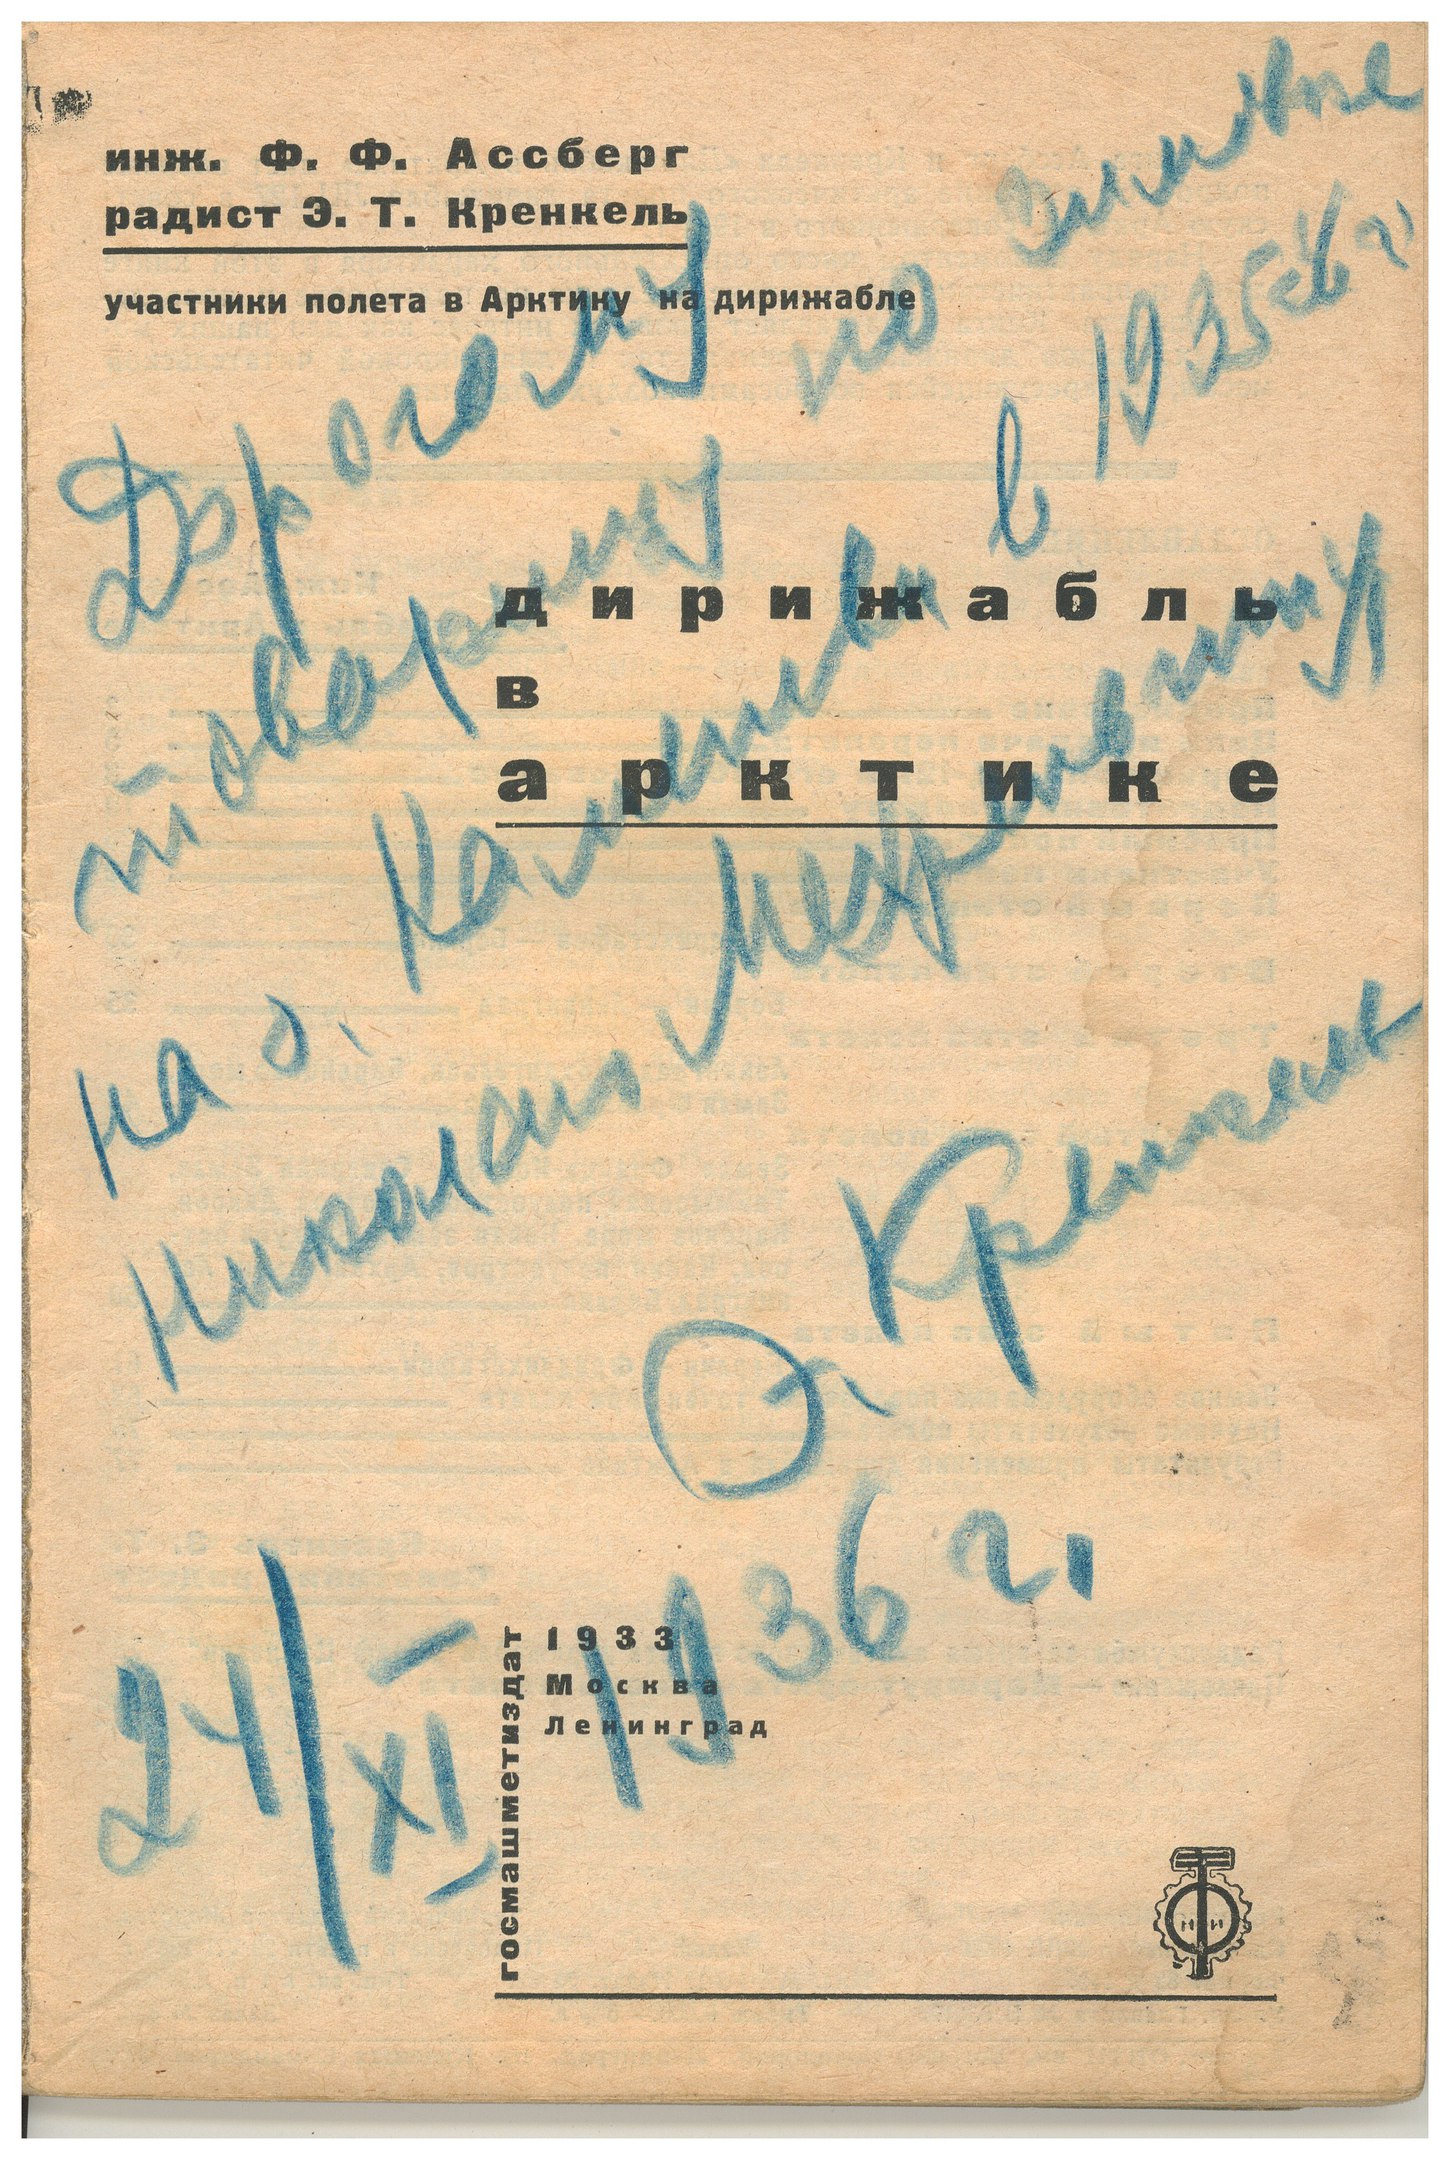 инж. Ф. Ф. Ассберг
радист Э. Т. Кренкель
участники полета в Арктику на дирижабле
Дорогому
товарищу по зимовке
на о. Каменева в 1935-6 г.
Николаю Мехреньгину
Э. Кренкель
24/XI-1936 г.
дирижабль
в
арктике
госмашметиздат
1933
Москва
Ленинград